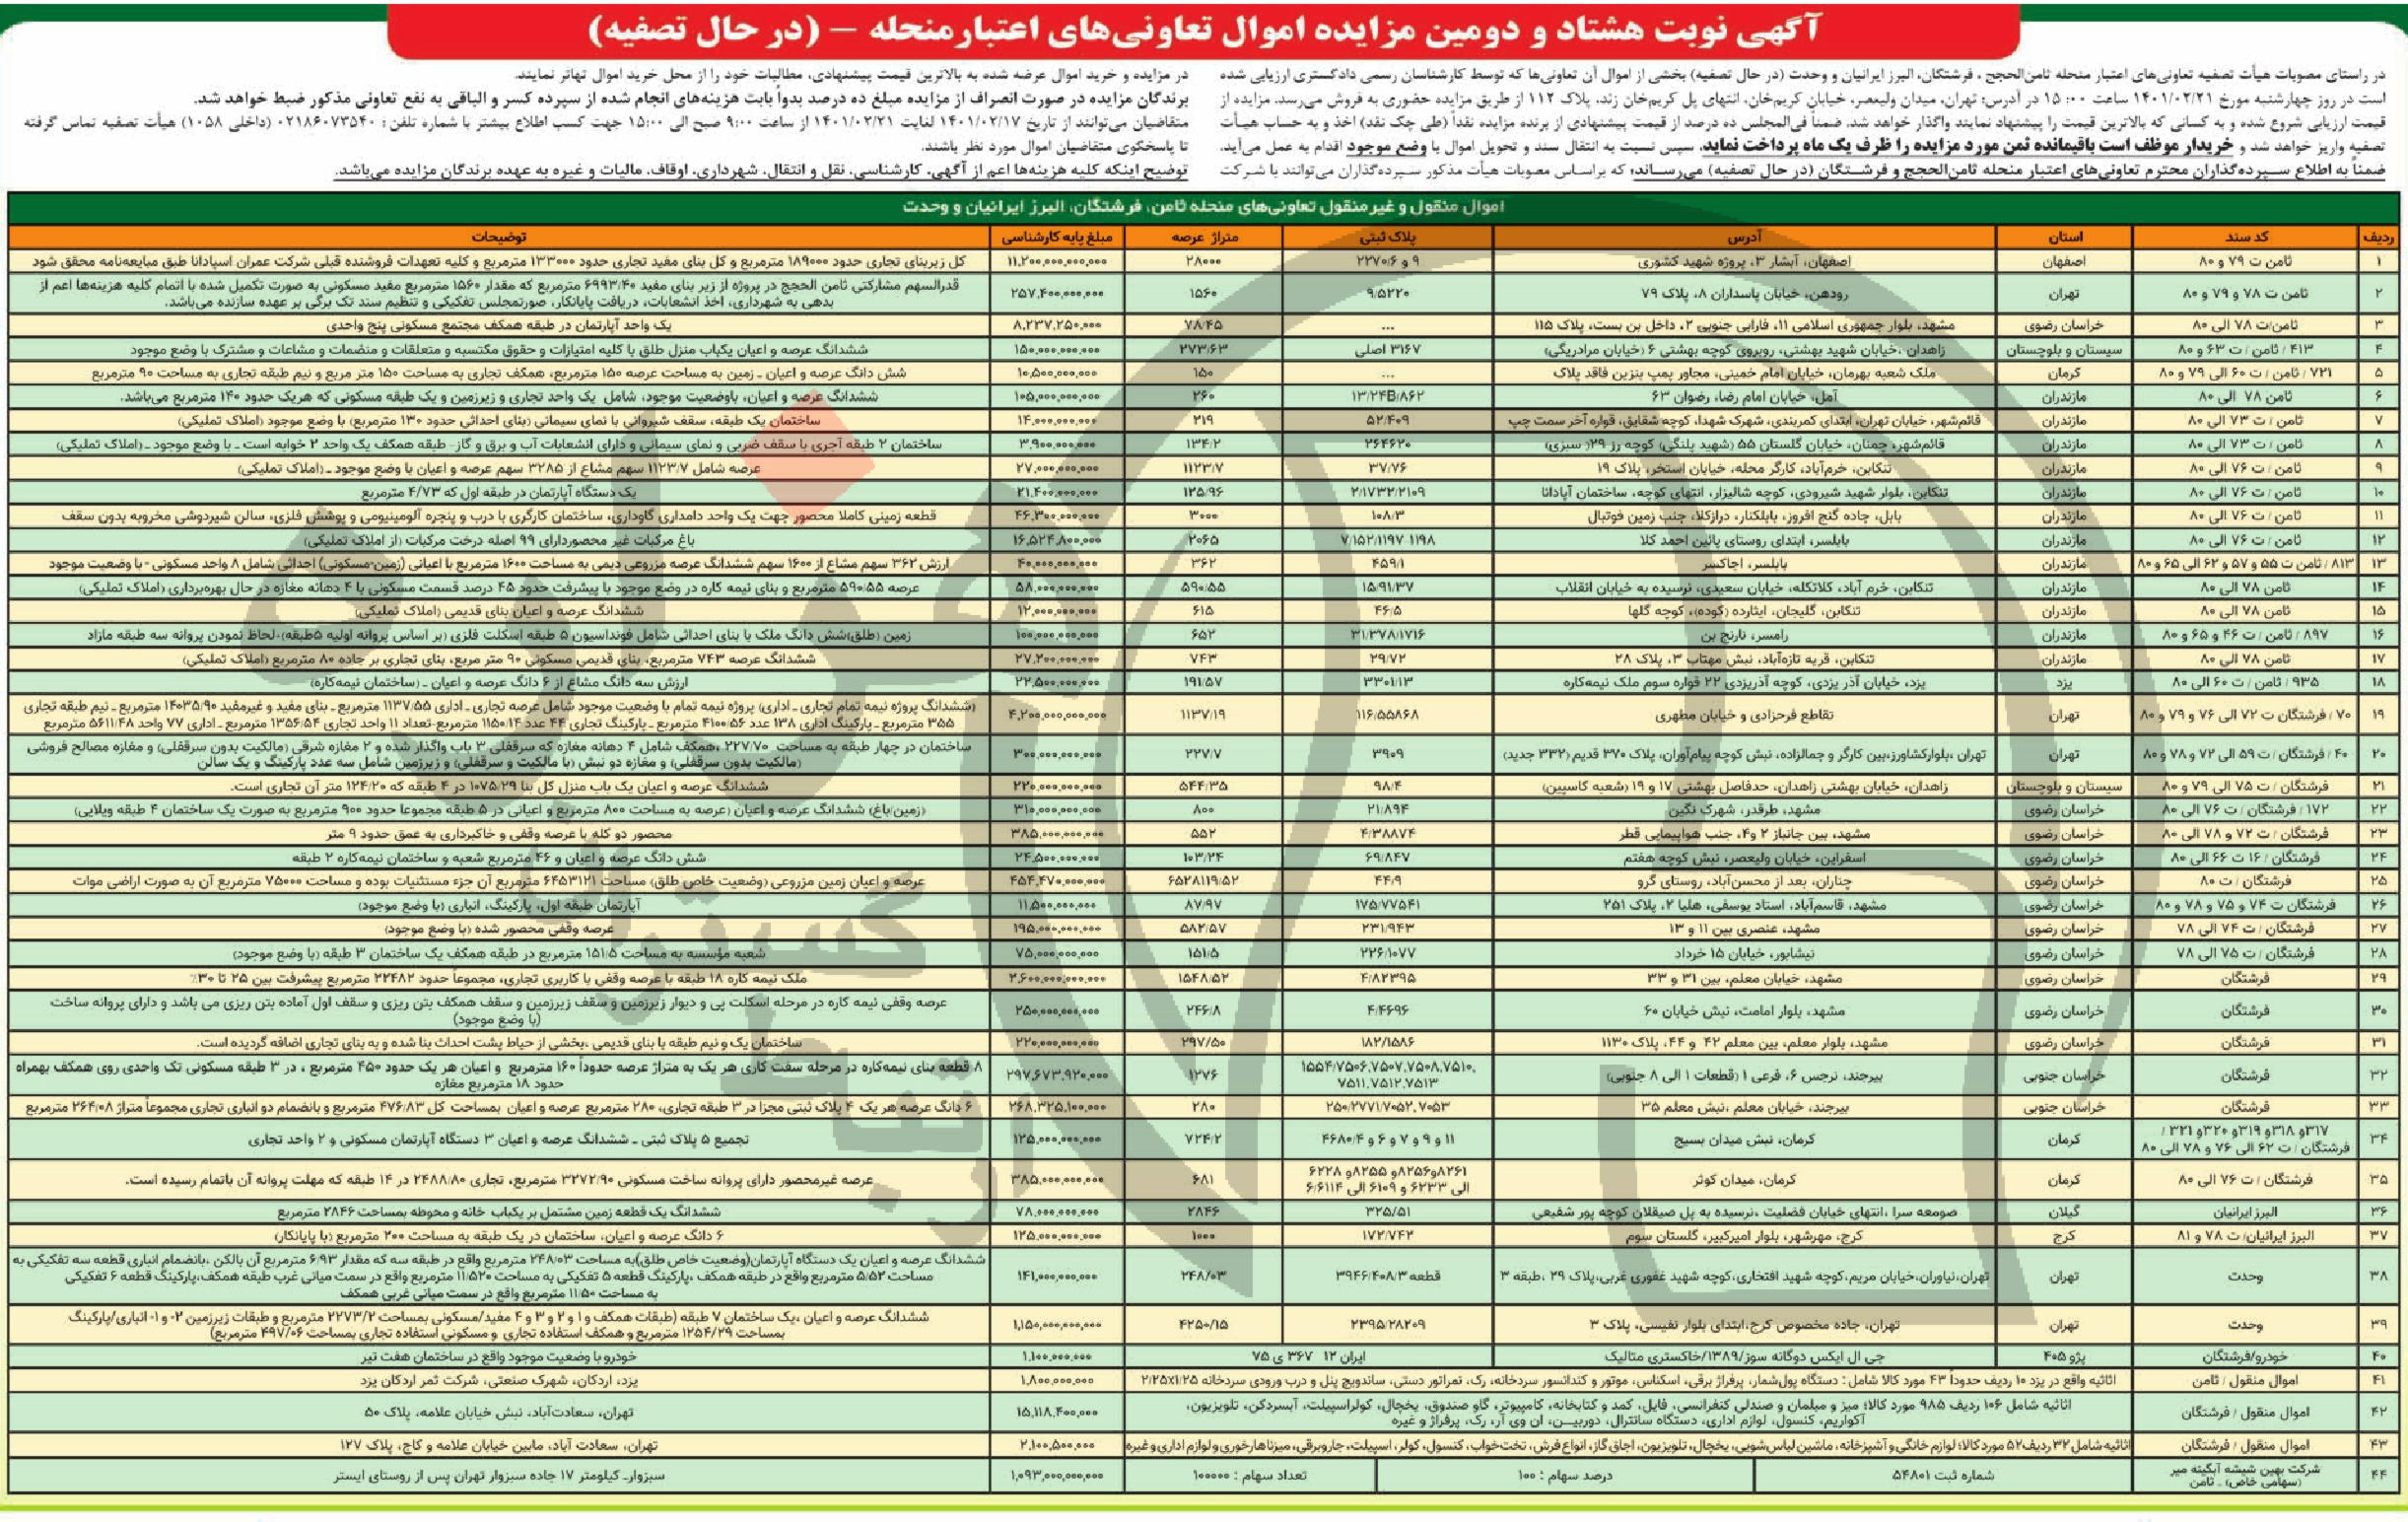 آگهی نوبت هشتاد و دومین مزایده اموال تعاونی‌های اعتبار منحله – (در حال تصفیه)
در راستای مصوبات هیأت تصفیه تعاونی‌های اعتبار منحله ثامن‌الحجج ، فرشتگان، البرز ایرانیان و وحدت (در حال تصفیه) بخشی از اموال آن تعاونی‌ها که توسط کارشناسان رسمی دادگستری ارزیابی شده
است در روز چهارشنبه مورخ ۱۴۰۱/۰۲/۲۱ ساعت ۱۵:۰۰ در آدرس: تهران، میدان ولیعصر، خیابان کریم‌خان، انتهای پل کریم‌خان زند، پلاک ۱۱۲ از طریق مزایده حضوری به فروش می‌رسد. مزایده از
قیمت ارزیابی شروع شده و به کسانی که بالاترین قیمت را پیشنهاد نمایند واگذار خواهد شد. ضمناً فی‌المجلس ده درصد از قیمت پیشنهادی از برنده مزایده نقداً (طی چک نقد) اخذ و به حساب هیأت
تصفیه واریز خواهد شد و خریدار موظف است باقیمانده ثمن مورد مزایده را ظرف یک ماه پرداخت نماید، سپس نسبت به انتقال سند و تحویل اموال با وضع موجود اقدام به عمل می‌آید.
ضمناً به اطلاع سپرده‌گذاران محترم تعاونی‌های اعتبار منحله ثامن‌الحجج و فرشتگان (در حال تصفیه) می‌رساند؛ که براساس مصوبات هیأت مذکور سپرده‌گذاران می‌توانند با شرکت
در مزایده و خرید اموال عرضه شده به بالاترین قیمت پیشنهادی، مطالبات خود را از محل خرید اموال تهاتر نمایند.
برندگان مزایده در صورت انصراف از مزایده مبلغ ده درصد بدواً بابت هزینه‌های انجام شده از سپرده کسر و الباقی به نفع تعاونی مذکور ضبط خواهد شد.
متقاضیان می‌توانند از تاریخ ۱۴۰۱/۰۲/۱۷ لغایت ۱۴۰۱/۰۲/۲۱ از ساعت ۹:۰۰ صبح الی ۱۵:۰۰ جهت کسب اطلاع بیشتر با شماره تلفن : ۰۲۱۸۶۰۷۳۵۴۰ (داخلی ۱۰۵۸) هیأت تصفیه تماس گرفته
تا پاسخگوی متقاضیان اموال مورد نظر باشند.
توضیح اینکه کلیه هزینه‌ها اعم از آگهی، کارشناسی، نقل و انتقال، شهرداری، اوقاف، مالیات و غیره به عهده برندگان مزایده می‌باشد.
اموال منقول و غیر منقول تعاونی‌های منحله ثامن، فرشتگان، البرز ایرانیان و وحدت
ردیف کد سند استان آدرس پلاک ثبتی متراژ عرصه مبلغ پایه کارشناسی توضیحات
۱ ثامن ت ۷۹ و ۸۰ اصفهان اصفهان، آبشار ۳، پروژه شهید کشوری ۹ و ۲۲۷۰/۶ ۲۸۰۰۰ ۱۱,۲۰۰,۰۰۰,۰۰۰,۰۰۰ کل زیربنای تجاری حدود ۱۸۹۰۰۰ مترمربع و کل بنای مفید تجاری حدود ۱۳۳۰۰۰ مترمربع و کلیه تعهدات فروشنده قبلی شرکت عمران اسپادانا طبق مبایعه‌نامه محقق شود
۲ ثامن ت ۷۸ و ۷۹ و ۸۰ تهران رودهن، خیابان پاسداران ۸، پلاک ۷۹ ۹/۵۲۲۰ ۱۵۶۰ ۲۵۷,۴۰۰,۰۰۰,۰۰۰ قدرالسهم مشارکتی ثامن الحجج در پروژه از زیر بنای مفید ۶۹۹۳/۴۰ مترمربع که مقدار ۱۵۶۰ مترمربع مفید مسکونی به صورت تکمیل شده با اتمام کلیه هزینه‌ها اعم از
بدهی به شهرداری، اخذ انشعابات، دریافت پایانکار، صورتمجلس تفکیکی و تنظیم سند تک برگی بر عهده سازنده می‌باشد.
۳ ثامن/ت ۷۸ الی ۸۰ خراسان رضوی مشهد، بلوار جمهوری اسلامی ۱۱، فارابی جنوبی ۲، داخل بن بست، پلاک ۱۱۵ ... ۷۸/۴۵ ۸,۲۳۷,۲۵۰,۰۰۰ یک واحد آپارتمان در طبقه همکف مجتمع مسکونی پنج واحدی
۴ ۴۱۳ / ثامن / ت ۶۳ و ۸۰ سیستان و بلوچستان زاهدان ،خیابان شهید بهشتی، روبروی کوچه بهشتی ۶ (خیابان مرادریگی) ۳۱۶۷ اصلی ۲۷۳/۶۳ ۱۵۰,۰۰۰,۰۰۰,۰۰۰ ششدانگ عرصه و اعیان یکباب منزل طلق با کلیه امتیازات و حقوق مکتسبه و متعلقات و منضمات و مشاعات و مشترک با وضع موجود
۵ ۷۲۱ / ثامن / ت ۶۰ الی ۷۹ و ۸۰ کرمان ملک شعبه بهرمان، خیابان امام خمینی، مجاور پمپ بنزین فاقد پلاک ... ۱۵۰ ۱۰,۵۰۰,۰۰۰,۰۰۰ شش دانگ عرصه و اعیان ـ زمین به مساحت عرصه ۱۵۰ مترمربع، همکف تجاری به مساحت ۱۵۰ متر مربع و نیم طبقه تجاری به مساحت ۹۰ مترمربع
۶ ثامن ۷۸ الی ۸۰ مازندران آمل، خیابان امام رضا، رضوان ۶۳ ۱۳/۲۴B/۸۶۲ ۲۶۰ ۱۰۵,۰۰۰,۰۰۰,۰۰۰ ششدانگ عرصه و اعیان، باوضعیت موجود، شامل یک واحد تجاری و زیرزمین و یک طبقه مسکونی که هریک حدود ۱۴۰ مترمربع می‌باشد.
۷ ثامن / ت ۷۳ الی ۸۰ مازندران قائم‌شهر، خیابان تهران، ابتدای کمربندی، شهرک شهدا، کوچه شقایق، قواره آخر سمت چپ ۵۲/۴۰۹ ۲۱۹ ۱۴,۰۰۰,۰۰۰,۰۰۰ ساختمان یک طبقه، سقف شیروانی با نمای سیمانی (بنای احداثی حدود ۱۳۰ مترمربع) با وضع موجود (املاک تملیکی)
۸ ثامن / ت ۷۳ الی ۸۰ مازندران قائم‌شهر، چمنان، خیابان گلستان ۵۵ (شهید پلنگی) کوچه رز ۲۹( سبزی) ۲۶۴۶۲۰ ۱۳۴/۲ ۳,۹۰۰,۰۰۰,۰۰۰ ساختمان ۲ طبقه آجری با سقف ضربی و نمای سیمانی و دارای انشعابات آب و برق و گاز- طبقه همکف یک واحد ۲ خوابه است ـ با وضع موجود ـ(املاک تملیکی)
۹ ثامن / ت ۷۶ الی ۸۰ مازندران تنکابن، خرم‌آباد، کارگر محله، خیابان استخر، پلاک ۱۹ ۳۷/۷۶ ۱۱۲۳/۷ ۲۷,۰۰۰,۰۰۰,۰۰۰ عرصه شامل ۱۱۲۳/۷ سهم مشاع از ۳۲۸۵ سهم عرصه و اعیان با وضع موجود ـ(املاک تملیکی)
۱۰ ثامن / ت ۷۶ الی ۸۰ مازندران تنکابن، بلوار شهید شیرودی، کوچه شالیزار، انتهای کوچه، ساختمان آپادانا ۲/۱۷۳۲/۲۱۰۹ ۱۲۵/۹۶ ۲۱,۴۰۰,۰۰۰,۰۰۰ یک دستگاه آپارتمان در طبقه اول که ۴/۷۳ مترمربع
۱۱ ثامن / ت ۷۶ الی ۸۰ مازندران بابل، جاده گنج افروز، بابلکنار، درازکلا، جنب زمین فوتبال ۱۰۸/۳ ۳۰۰۰ ۴۶,۳۰۰,۰۰۰,۰۰۰ قطعه زمینی کاملا محصور جهت یک واحد دامداری گاوداری، ساختمان کارگری با درب و پنجره آلومینیومی و پوشش فلزی، سالن شیردوشی مخروبه بدون سقف
۱۲ ثامن / ت ۷۶ الی ۸۰ مازندران بابلسر، ابتدای روستای پائین احمد کلا ۷/۱۵۲/۱۱۹۷-۱۱۹۸ ۲۰۶۵ ۱۶,۵۲۴,۸۰۰,۰۰۰ باغ مرکبات غیر محصوردارای ۹۹ اصله درخت مرکبات (از املاک تملیکی)
۱۳ ۸۱۳ / ثامن ت ۵۵ و ۵۷ و ۶۲ الی ۶۵ و ۸۰ مازندران بابلسر، اجاکسر ۴۵۹/۱ ۳۶۲ ۴۰,۰۰۰,۰۰۰,۰۰۰ ارزش ۳۶۲ سهم مشاع از ۱۶۰۰ سهم ششدانگ عرصه مزروعی دیمی به مساحت ۱۶۰۰ مترمربع با اعیانی (زمین-مسکونی) احداثی شامل ۸ واحد مسکونی - با وضعیت موجود
۱۴ ثامن ۷۸ الی ۸۰ مازندران تنکابن، خرم آباد، کلاتکله، خیابان سعیدی، نرسیده به خیابان انقلاب ۱۵/۹۱/۳۷ ۵۹۰/۵۵ ۵۸,۰۰۰,۰۰۰,۰۰۰ عرصه ۵۹۰/۵۵ مترمربع و بنای نیمه کاره در وضع موجود با پیشرفت حدود ۴۵ درصد قسمت مسکونی با ۴ دهانه مغازه در حال بهره‌برداری (املاک تملیکی)
۱۵ ثامن ۷۸ الی ۸۰ مازندران تنکابن، گلیجان، ایثارده (کوده)، کوچه گلها ۴۶/۵ ۶۱۵ ۱۲,۰۰۰,۰۰۰,۰۰۰ ششدانگ عرصه و اعیان بنای قدیمی (املاک تملیکی)
۱۶ ۸۹۷ / ثامن / ت ۴۶ و ۶۵ و ۸۰ مازندران رامسر، نارنج بن ۳۱/۳۷۸/۱۷۱۶ ۶۵۲ ۱۰۰,۰۰۰,۰۰۰,۰۰۰ زمین (طلق)شش دانگ ملک با بنای احداثی شامل فونداسیون ۵ طبقه اسکلت فلزی (بر اساس پروانه اولیه ۵طبقه)-لحاظ نمودن پروانه سه طبقه مازاد
۱۷ ثامن ۷۸ الی ۸۰ مازندران تنکابن، قریه تازه‌آباد، نبش مهتاب ۳، پلاک ۲۸ ۲۹/۷۲ ۷۴۳ ۲۷,۲۰۰,۰۰۰,۰۰۰ ششدانگ عرصه ۷۴۳ مترمربع، بنای قدیمی مسکونی ۹۰ متر مربع، بنای تجاری بر جاده ۸۰ مترمربع (املاک تملیکی)
۱۸ ۹۳۵ / ثامن / ت ۶۰ الی ۸۰ یزد یزد، خیابان آذر یزدی، کوچه آذریزدی ۲۲ قواره سوم ملک نیمه‌کاره ۳۳۰۱/۱۳ ۱۹۱/۵۷ ۲۲,۵۰۰,۰۰۰,۰۰۰ ارزش سه دانگ مشاع از ۶ دانگ عرصه و اعیان ـ (ساختمان نیمه‌کاره)
۱۹ ۷۰ / فرشتگان ت ۷۲ الی ۷۶ و ۷۹ و ۸۰ تهران تقاطع فرحزادی و خیابان مطهری ۱۱۶/۵۵۸۶۸ ۱۱۳۷/۱۹ ۴,۲۰۰,۰۰۰,۰۰۰,۰۰۰ (ششدانگ پروژه نیمه تمام تجاری ـ اداری) پروژه نیمه تمام با وضعیت موجود شامل عرصه تجاری ـ اداری ۱۱۳۷/۵۵ مترمربع ـ بنای مفید و غیرمفید ۱۴۰۳۵/۹۰ مترمربع ـ نیم طبقه تجاری
۳۵۵ مترمربع ـ پارکینگ اداری ۱۳۸ عدد ۴۱۰۰/۵۶ مترمربع ـ پارکینگ تجاری ۴۴ عدد ۱۱۵۰/۱۴ مترمربع-تعداد ۱۱ واحد تجاری ۱۳۵۶/۵۴ مترمربع ـ اداری ۷۷ واحد ۵۶۱۱/۴۸ مترمربع
۲۰ ۴۰ / فرشتگان / ت ۵۹ الی ۷۲ و ۷۸ و ۸۰ تهران تهران ،بلوارکشاورز،بین کارگر و جمالزاده، نبش کوچه پیام‌آوران، پلاک ۳۷۰ قدیم (۳۳۲ جدید) ۳۹۰۹ ۲۲۷/۷ ۳۰۰,۰۰۰,۰۰۰,۰۰۰ ساختمان در چهار طبقه به مساحت ۲۲۷/۷۰ ،همکف شامل ۴ دهانه مغازه که سرقفلی ۳ باب واگذار شده و ۲ مغازه شرقی (مالکیت بدون سرقفلی) و مغازه مصالح فروشی
(مالکیت بدون سرقفلی) و مغازه دو نبش (با مالکیت و سرقفلی) و زیرزمین شامل سه عدد پارکینگ و یک سالن
۲۱ فرشتگان / ت ۷۵ الی ۷۹ و ۸۰ سیستان و بلوچستان زاهدان، خیابان بهشتی زاهدان، حدفاصل بهشتی ۱۷ و ۱۹ (شعبه کاسپین) ۹۸/۴ ۵۴۴/۳۵ ۲۲۰,۰۰۰,۰۰۰,۰۰۰ ششدانگ عرصه و اعیان یک باب منزل کل بنا ۱۰۷۵/۲۹ در ۴ طبقه که ۱۲۴/۲۰ متر آن تجاری است.
۲۲ ۱۷۲ / فرشتگان / ت ۷۶ الی ۸۰ خراسان رضوی مشهد، طرقدر، شهرک نگین ۲۱/۸۹۴ ۸۰۰ ۳۱۰,۰۰۰,۰۰۰,۰۰۰ (زمین/باغ) ششدانگ عرصه و اعیان (عرصه به مساحت ۸۰۰ مترمربع و اعیانی در ۵ طبقه مجموعا حدود ۹۰۰ مترمربع به صورت یک ساختمان ۴ طبقه ویلایی)
۲۳ فرشتگان / ت ۷۲ و ۷۸ الی ۸۰ خراسان رضوی مشهد، بین جانباز ۲ و۴، جنب هواپیمایی قطر ۴/۳۸۸۷۴ ۵۵۲ ۳۸۵,۰۰۰,۰۰۰,۰۰۰ محصور دو کله با عرصه وقفی و خاکبرداری به عمق حدود ۹ متر
۲۴ فرشتگان / ۱۶ ت ۶۶ الی ۸۰ خراسان رضوی اسفراین، خیابان ولیعصر، نبش کوچه هفتم ۶۹/۸۴۷ ۱۰۳/۲۴ ۲۴,۵۰۰,۰۰۰,۰۰۰ شش دانگ عرصه و اعیان و ۴۶ مترمربع شعبه و ساختمان نیمه‌کاره ۲ طبقه
۲۵ فرشتگان / ت ۸۰ خراسان رضوی چناران، بعد از محسن‌آباد، روستای گرو ۴۴/۹ ۶۵۲۸۱۱۹/۵۲ ۴۵۴,۴۷۰,۰۰۰,۰۰۰ عرصه و اعیان زمین مزروعی (وضعیت خاص طلق) مساحت ۶۴۵۳۱۲۱ مترمربع آن جزء مستثنیات بوده و مساحت ۷۵۰۰۰ مترمربع آن به صورت اراضی موات
۲۶ فرشتگان ت ۷۴ و ۷۵ و ۷۸ و ۸۰ خراسان رضوی مشهد، قاسم‌آباد، استاد یوسفی، هلیا ۲، پلاک ۲۵۱ ۱۷۵/۷۷۵۴۱ ۸۷/۹۷ ۱۱,۵۰۰,۰۰۰,۰۰۰ آپارتمان طبقه اول، پارکینگ، انباری (با وضع موجود)
۲۷ فرشتگان / ت ۷۴ الی ۷۸ خراسان رضوی مشهد، عنصری بین ۱۱ و ۱۳ ۲۳۱/۹۴۳ ۵۸۲/۵۷ ۱۹۵,۰۰۰,۰۰۰,۰۰۰ عرصه وقفی محصور شده (با وضع موجود)
۲۸ فرشتگان / ت ۷۵ الی ۷۸ خراسان رضوی نیشابور، خیابان ۱۵ خرداد ۲۳۶/۱۰۷۷ ۱۵۱/۵ ۷۵,۰۰۰,۰۰۰,۰۰۰ شعبه مؤسسه به مساحت ۱۵۱/۵ مترمربع در طبقه همکف یک ساختمان ۳ طبقه (با وضع موجود)
۲۹ فرشتگان خراسان رضوی مشهد، خیابان معلم، بین ۳۱ و ۳۳ ۴/۸۲۳۹۵ ۱۵۴۸/۵۲ ۲,۶۰۰,۰۰۰,۰۰۰,۰۰۰ ملک نیمه کاره ۱۸ طبقه با عرصه وقفی با کاربری تجاری، مجموعاً حدود ۲۲۴۸۲ مترمربع پیشرفت بین ۲۵ تا ۳۰٪
۳۰ فرشتگان خراسان رضوی مشهد، بلوار امامت، نبش خیابان ۶۰ ۴/۴۶۹۶ ۲۴۶/۸ ۲۵۰,۰۰۰,۰۰۰,۰۰۰ عرصه وقفی نیمه کاره در مرحله اسکلت پی و دیوار زیرزمین و سقف زیرزمین و سقف همکف بتن ریزی و سقف اول آماده بتن ریزی می باشد و دارای پروانه ساخت
(با وضع موجود)
۳۱ فرشتگان خراسان رضوی مشهد، بلوار معلم، بین معلم ۴۲ و ۴۴، پلاک ۱۱۳۰ ۱۸۲/۱۵۸۶ ۲۹۷/۵۰ ۲۲۰,۰۰۰,۰۰۰,۰۰۰ ساختمان یک و نیم طبقه با بنای قدیمی ،بخشی از حیاط پشت احداث بنا شده و به بنای تجاری اضافه گردیده است.
۳۲ فرشتگان خراسان جنوبی بیرجند، نرجس ۶، فرعی ۱ (قطعات ۱ الی ۸ جنوبی) ۱۵۵۴/۷۵۰۶,۷۵۰۷,۷۵۰۸,۷۵۱۰,
۷۵۱۱,۷۵۱۲,۷۵۱۳ ۱۲۷۶ ۲۹۷,۶۷۳,۹۲۰,۰۰۰ ۸ قطعه بنای نیمه‌کاره در مرحله سفت کاری هر یک به متراژ عرصه حدوداً ۱۶۰ مترمربع و اعیان هر یک حدود ۴۵۰ مترمربع ، در ۳ طبقه مسکونی تک واحدی روی همکف بهمراه
حدود ۱۸ مترمربع مغازه
۳۳ فرشتگان خراسان جنوبی بیرجند، خیابان معلم ،نبش معلم ۳۵ ۲۵۰/۲۷۷۱/۷۰۵۲,۷۰۵۳ ۲۸۰ ۲۶۸,۳۲۵,۱۰۰,۰۰۰ ۶ دانگ عرصه هر یک ۴ پلاک ثبتی مجزا در ۳ طبقه تجاری، ۲۸۰ مترمربع عرصه و اعیان بمساحت کل ۴۷۶/۸۳ مترمربع و بانضمام دو انباری تجاری مجموعاً متراژ ۲۶۴/۰۸ مترمربع
۳۴ ۳۱۷و ۳۱۸و ۳۱۹و ۳۲۰و ۳۲۱ /
فرشتگان / ت ۶۲ الی ۷۶ و ۷۸ الی ۸۰ کرمان کرمان، نبش میدان بسیج ۱۱ و ۹ و ۷ و ۶ و ۴۶۸۰/۴ ۷۲۴/۲ ۱۲۵,۰۰۰,۰۰۰,۰۰۰ تجمیع ۵ پلاک ثبتی ـ ششدانگ عرصه و اعیان ۳ دستگاه آپارتمان مسکونی و ۲ واحد تجاری
۳۵ فرشتگان / ت ۷۶ الی ۸۰ کرمان کرمان، میدان کوثر ۸۲۶۱و۸۲۵۶و ۸۲۵۵و ۶۲۲۸
الی ۶۲۳۳ و ۶۱۰۹ الی ۶/۶۱۱۴ ۶۸۱ ۳۸۵,۰۰۰,۰۰۰,۰۰۰ عرصه غیرمحصور دارای پروانه ساخت مسکونی ۳۲۷۲/۹۰ مترمربع، تجاری ۲۴۸۸/۸۰ در ۱۴ طبقه که مهلت پروانه آن باتمام رسیده است.
۳۶ البرز ایرانیان گیلان صومعه سرا ،انتهای خیابان فضلیت ،نرسیده به پل صیقلان کوچه پور شفیعی ۳۲۵/۵۱ ۲۸۴۶ ۷۸,۰۰۰,۰۰۰,۰۰۰ ششدانگ یک قطعه زمین مشتمل بر یکباب خانه و محوطه بمساحت ۲۸۴۶ مترمربع
۳۷ البرز ایرانیان/ ت ۷۸ و ۸۱ کرج کرج، مهرشهر، بلوار امیرکبیر، گلستان سوم ۱۷۲/۷۴۲ ۱۰۰۰ ۱۲۵,۰۰۰,۰۰۰,۰۰۰ ۶ دانگ عرصه و اعیان، ساختمان در یک طبقه به مساحت ۲۰۰ مترمربع (با پایانکار)
۳۸ وحدت تهران تهران،نیاوران،خیابان مریم،کوچه شهید افتخاری،کوچه شهید غفوری غربی،پلاک ۲۹ ،طبقه ۳ قطعه ۳۹۴۶/۴۰۸/۳ ۲۴۸/۰۳ ۱۴۱,۰۰۰,۰۰۰,۰۰۰ ششدانگ عرصه و اعیان یک دستگاه آپارتمان(وضعیت خاص طلق)به مساحت ۲۴۸/۰۳ مترمربع واقع در طبقه سه که مقدار ۶/۹۳ مترمربع آن بالکن ،بانضمام انباری قطعه سه تفکیکی به
مساحت ۵/۵۲ مترمربع واقع در طبقه همکف ،پارکینگ قطعه ۵ تفکیکی به مساحت ۱۱/۵۲۰ مترمربع واقع در سمت میانی غرب طبقه همکف،پارکینگ قطعه ۶ تفکیکی
به مساحت ۱۱/۵۰ مترمربع واقع در سمت میانی غربی همکف
۳۹ وحدت تهران تهران، جاده مخصوص کرج،ابتدای بلوار نفیسی، پلاک ۳ ۲۳۹۵/۲۸۲۰۹ ۴۲۵۰/۱۵ ۱,۱۵۰,۰۰۰,۰۰۰,۰۰۰ ششدانگ عرصه و اعیان ،یک ساختمان ۷ طبقه (طبقات همکف و ۱ و ۲ و ۳ و ۴ مفید/مسکونی بمساحت ۲۲۷۳/۲ مترمربع و طبقات زیرزمین ۲- و ۱- انباری/پارکینگ
بمساحت ۱۲۵۴/۲۹ مترمربع و همکف استفاده تجاری و مسکونی استفاده تجاری بمساحت ۴۹۷/۰۶ مترمربع)
۴۰ خودرو/فرشتگان پژو ۴۰۵ جی ال ایکس دوگانه سوز/۱۳۸۹/خاکستری متالیک ایران ۱۲ ۳۶۷ ی ۷۵ ۱,۱۰۰,۰۰۰,۰۰۰ خودرو با وضعیت موجود واقع در ساختمان هفت تیر
۴۱ اموال منقول / ثامن اثاثیه واقع در یزد ۱۰ ردیف حدوداً ۴۳ مورد کالا شامل : دستگاه پول‌شمار، پرفراژ برقی، اسکناس، موتور و کندانسور سردخانه، رک، نمراتور دستی، ساندویچ پنل و درب ورودی سردخانه ۲/۲۵x۱/۲۵ ۱,۸۰۰,۰۰۰,۰۰۰ یزد، اردکان، شهرک صنعتی، شرکت ثمر اردکان یزد
۴۲ اموال منقول / فرشتگان اثاثیه شامل ۱۰۶ ردیف ۹۸۵ مورد کالا؛ میز و مبلمان و صندلی کنفرانسی، فایل، کمد و کتابخانه، کامپیوتر، گاو صندوق، یخچال، کولراسپیلت، آبسردکن، تلویزیون،
آکواریم، کنسول، لوازم اداری، دستگاه سانترال، دوربین، ان وی آر، رک، پرفراژ و غیره ۱۵,۱۱۸,۴۰۰,۰۰۰ تهران، سعادت‌آباد، نبش خیابان علامه، پلاک ۵۰
۴۳ اموال منقول / فرشتگان اثاثیه شامل ۳۲ ردیف ۵۲ مورد کالا؛ لوازم خانگی و آشپزخانه، ماشین لباس‌شویی، یخچال، تلویزیون، اجاق گاز، انواع فرش، تخت‌خواب، کنسول، کولر، اسپیلت، جاروبرقی، میزناهارخوری و لوازم اداری و غیره ۲,۱۰۰,۵۰۰,۰۰۰ تهران، سعادت آباد، مابین خیابان علامه و کاج، پلاک ۱۲۷
۴۴ شرکت بهین شیشه آبگینه میر
(سهامی خاص) ـ ثامن شماره ثبت ۵۴۸۰۱ درصد سهام : ۱۰۰ تعداد سهام : ۱۰۰۰۰۰ ۱,۰۹۳,۰۰۰,۰۰۰,۰۰۰ سبزوار- کیلومتر ۱۷ جاده سبزوار تهران پس از روستای ایستر